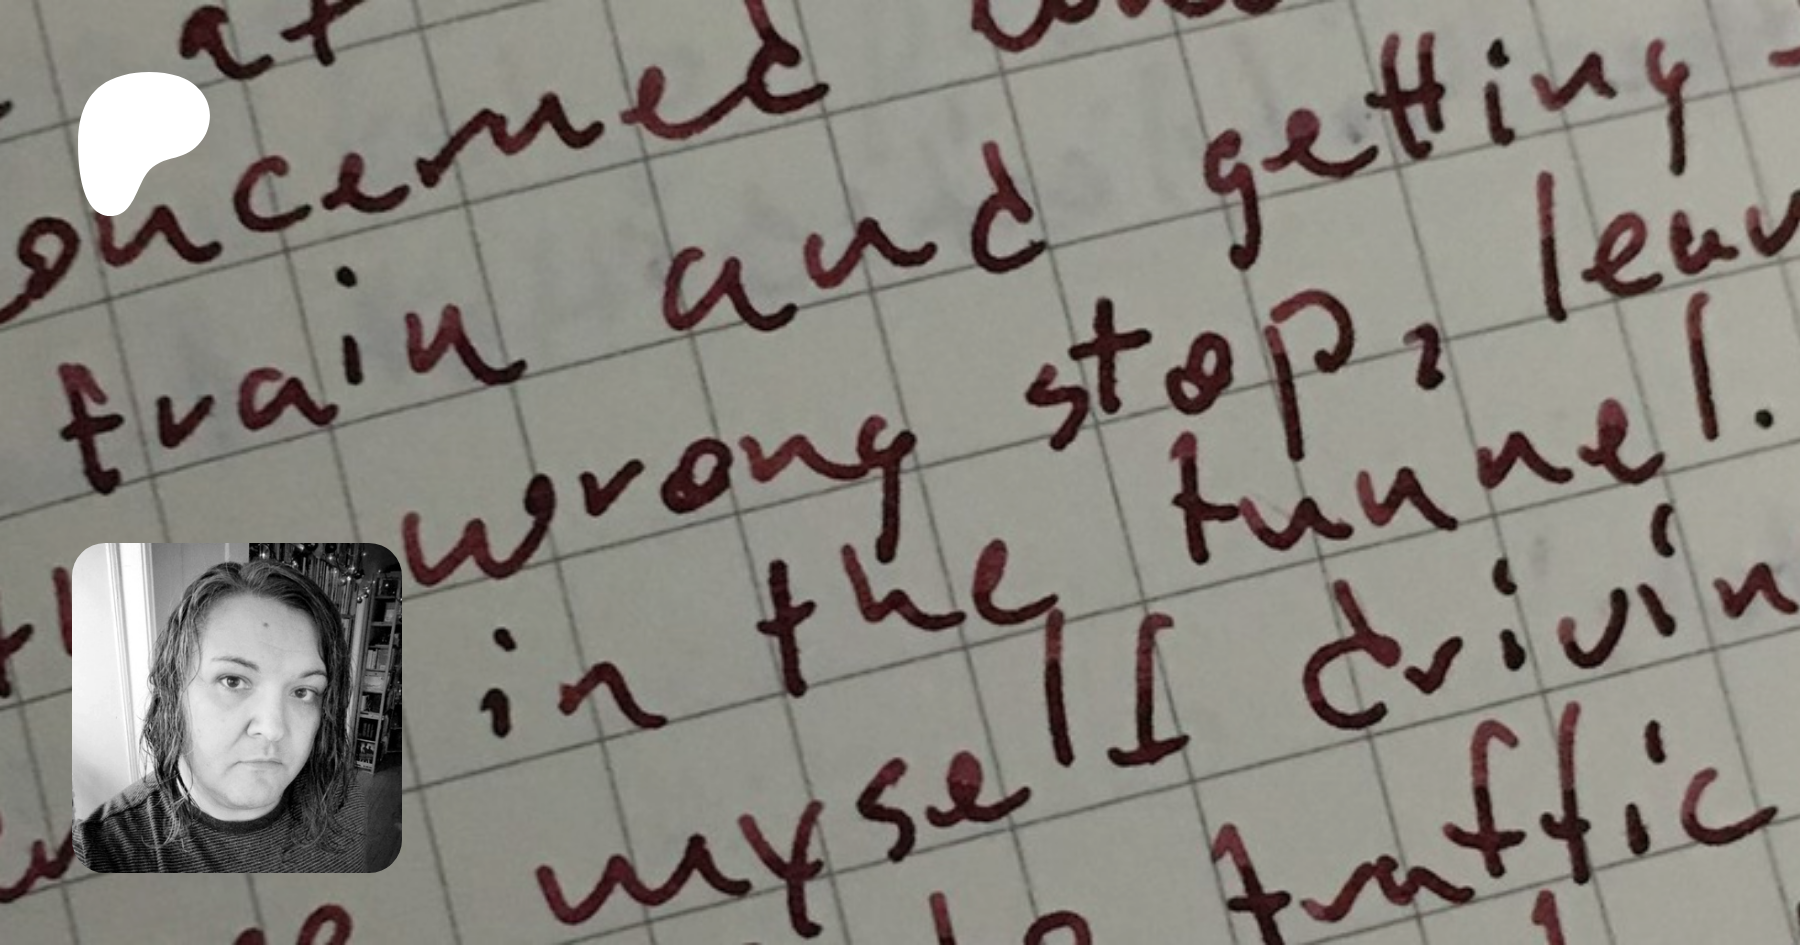 at
oncerned
train and getting
wrong stop,
in the tunnel.
myself driving
traffic